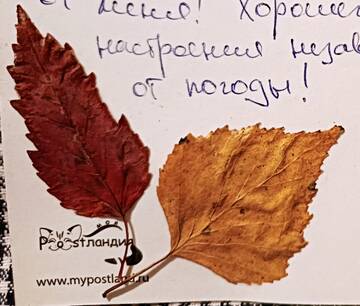 от меня! Хорошег
настроения незав
от погоды!
Postландия
www.mypostla